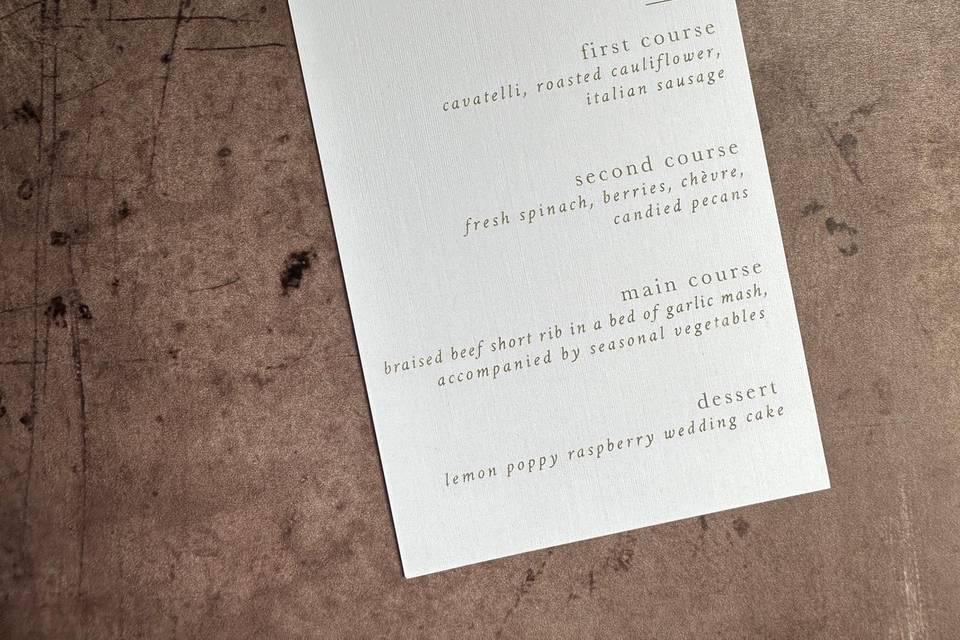 first course
cavatelli, roasted cauliflower,
italian sausage
second course
fresh spinach, berries, chèvre,
candied pecans
main course
braised beef short rib in a bed of garlic mash,
accompanied by seasonal vegetables
dessert
lemon poppy raspberry wedding cake